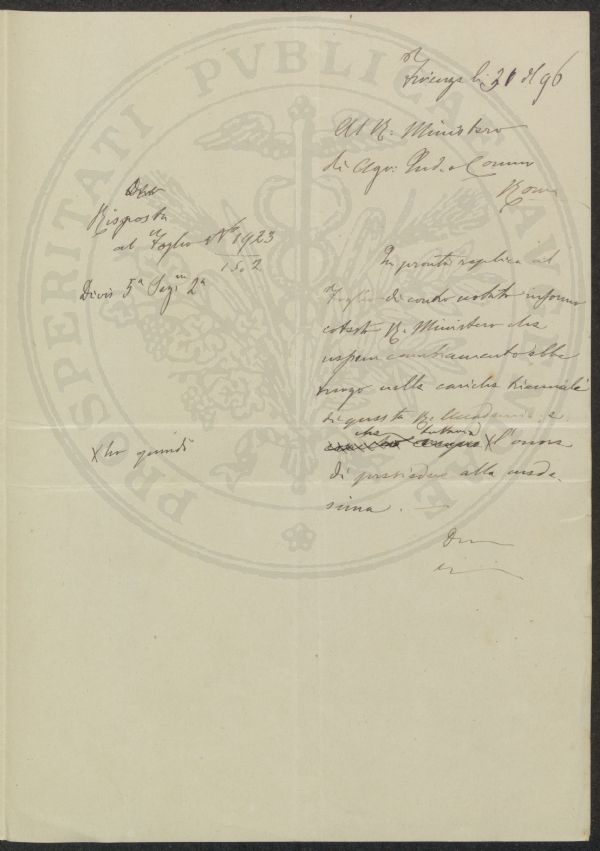 PROSPERITATI PVBLICAE AVGENDAE
Firenze li 31 96
Al R. Ministero
di Agr. Ind. e Comm
Roma
Risposta
al Foglio N° 1923
15.2
Divis 5ª Sez.n 2ª
In pronta replica al
Foglio di contro notato informo
cotesto R. Ministero che
nessun cambiamento ebbe
luogo nelle cariche triennali
di questa R. Accademia e
che tuttora
X l'onore
di presiedere alla mede
sima.
X ho quindi